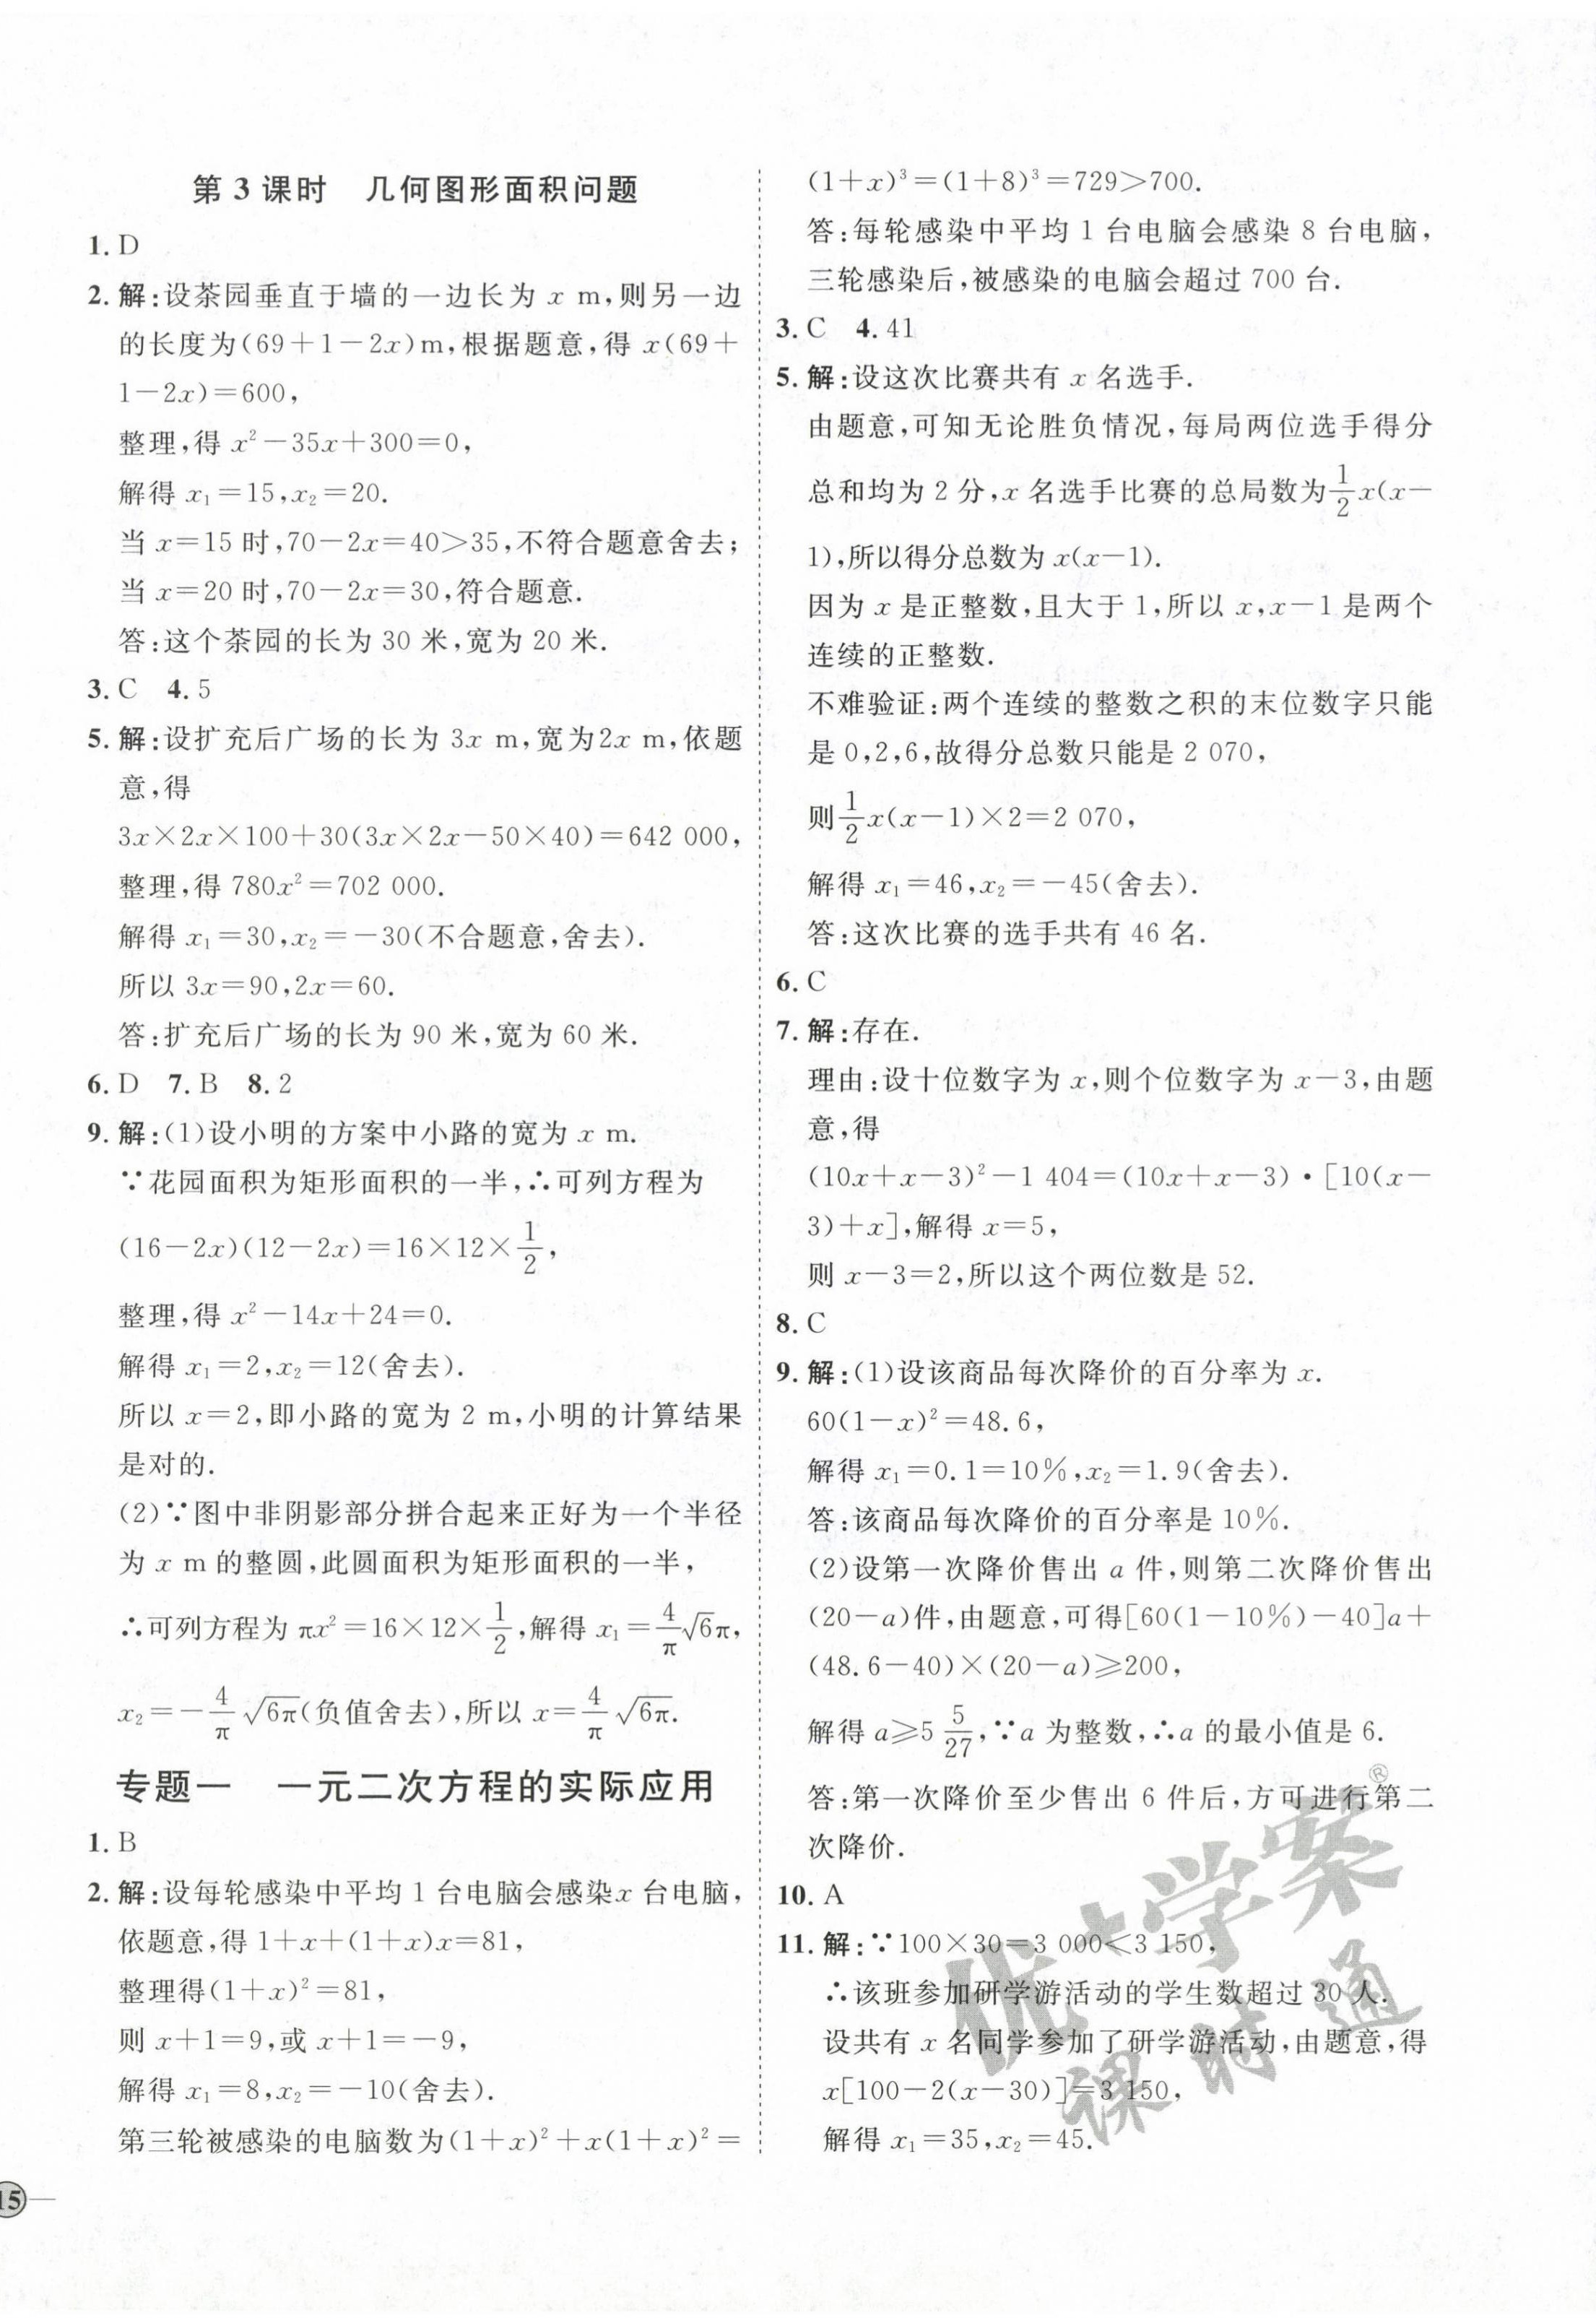 第 3 课时　几何图形面积问题
1. D
2. 解:设茶园垂直于墙的一边长为 x m,则另一边
的长度为(69+1-2x)m,根据题意,得 x(69+
1-2x)=600,
整理,得 x²-35x+300=0,
解得 x₁=15,x₂=20.
当 x=15 时,70-2x=40>35,不符合题意舍去;
当 x=20 时,70-2x=30,符合题意.
答:这个茶园的长为 30 米,宽为 20 米.
3. C　4. 5
5. 解:设扩充后广场的长为 3x m,宽为2x m,依题
意,得
3x×2x×100+30(3x×2x-50×40)=642 000,
整理,得 780x²=702 000.
解得 x₁=30,x₂=-30(不合题意,舍去).
所以 3x=90,2x=60.
答:扩充后广场的长为 90 米,宽为 60 米.
6. D　7. B　8. 2
9. 解:(1)设小明的方案中小路的宽为 x m.
∵花园面积为矩形面积的一半,∴可列方程为
(16-2x)(12-2x)=16×12×1/2,
整理,得 x²-14x+24=0.
解得 x₁=2,x₂=12(舍去).
所以 x=2,即小路的宽为 2 m,小明的计算结果
是对的.
(2)∵图中非阴影部分拼合起来正好为一个半径
为 x m 的整圆,此圆面积为矩形面积的一半,
∴可列方程为 πx²=16×12×1/2,解得 x₁=4/π√6π,
x₂=-4/π√6π(负值舍去),所以 x=4/π√6π.
专题一　一元二次方程的实际应用
1. B
2. 解:设每轮感染中平均 1 台电脑会感染x 台电脑,
依题意,得 1+x+(1+x)x=81,
整理得(1+x)²=81,
则 x+1=9,或 x+1=-9,
解得 x₁=8,x₂=-10(舍去).
第三轮被感染的电脑数为(1+x)²+x(1+x)²=
15
(1+x)³=(1+8)³=729>700.
答:每轮感染中平均 1 台电脑会感染 8 台电脑,
三轮感染后,被感染的电脑会超过 700 台.
3. C　4. 41
5. 解:设这次比赛共有 x 名选手.
由题意,可知无论胜负情况,每局两位选手得分
总和均为 2 分,x 名选手比赛的总局数为1/2x(x-
1),所以得分总数为 x(x-1).
因为 x 是正整数,且大于 1,所以 x,x-1 是两个
连续的正整数.
不难验证:两个连续的整数之积的末位数字只能
是 0,2,6,故得分总数只能是 2 070,
则1/2x(x-1)×2=2 070,
解得 x₁=46,x₂=-45(舍去).
答:这次比赛的选手共有 46 名.
6. C
7. 解:存在.
理由:设十位数字为 x,则个位数字为 x-3,由题
意,得
(10x+x-3)²-1 404=(10x+x-3)·[10(x-
3)+x],解得 x=5,
则 x-3=2,所以这个两位数是 52.
8. C
9. 解:(1)设该商品每次降价的百分率为 x.
60(1-x)²=48.6,
解得 x₁=0.1=10%,x₂=1.9(舍去).
答:该商品每次降价的百分率是 10%.
(2)设第一次降价售出 a 件,则第二次降价售出
(20-a)件,由题意,可得[60(1-10%)-40]a+
(48.6-40)×(20-a)≥200,
解得 a≥5 5/27,∵a 为整数,∴a 的最小值是 6.
答:第一次降价至少售出 6 件后,方可进行第二
次降价.
10. A
11. 解:∵100×30=3 000<3 150,
∴该班参加研学游活动的学生数超过 30 人.
设共有 x 名同学参加了研学游活动,由题意,得
x[100-2(x-30)]=3 150,
解得 x₁=35,x₂=45.
优+学案®
课时通